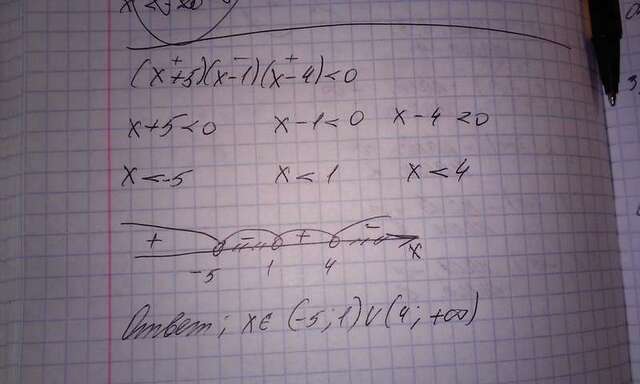 (x+5)(x-1)(x-4)<0
x+5<0 x-1<0 x-4<0
x<-5 x<1 x<4
+ - + -
-5 1 4 x
Ответ; x∈ (-5;1)∪(4;+∞)